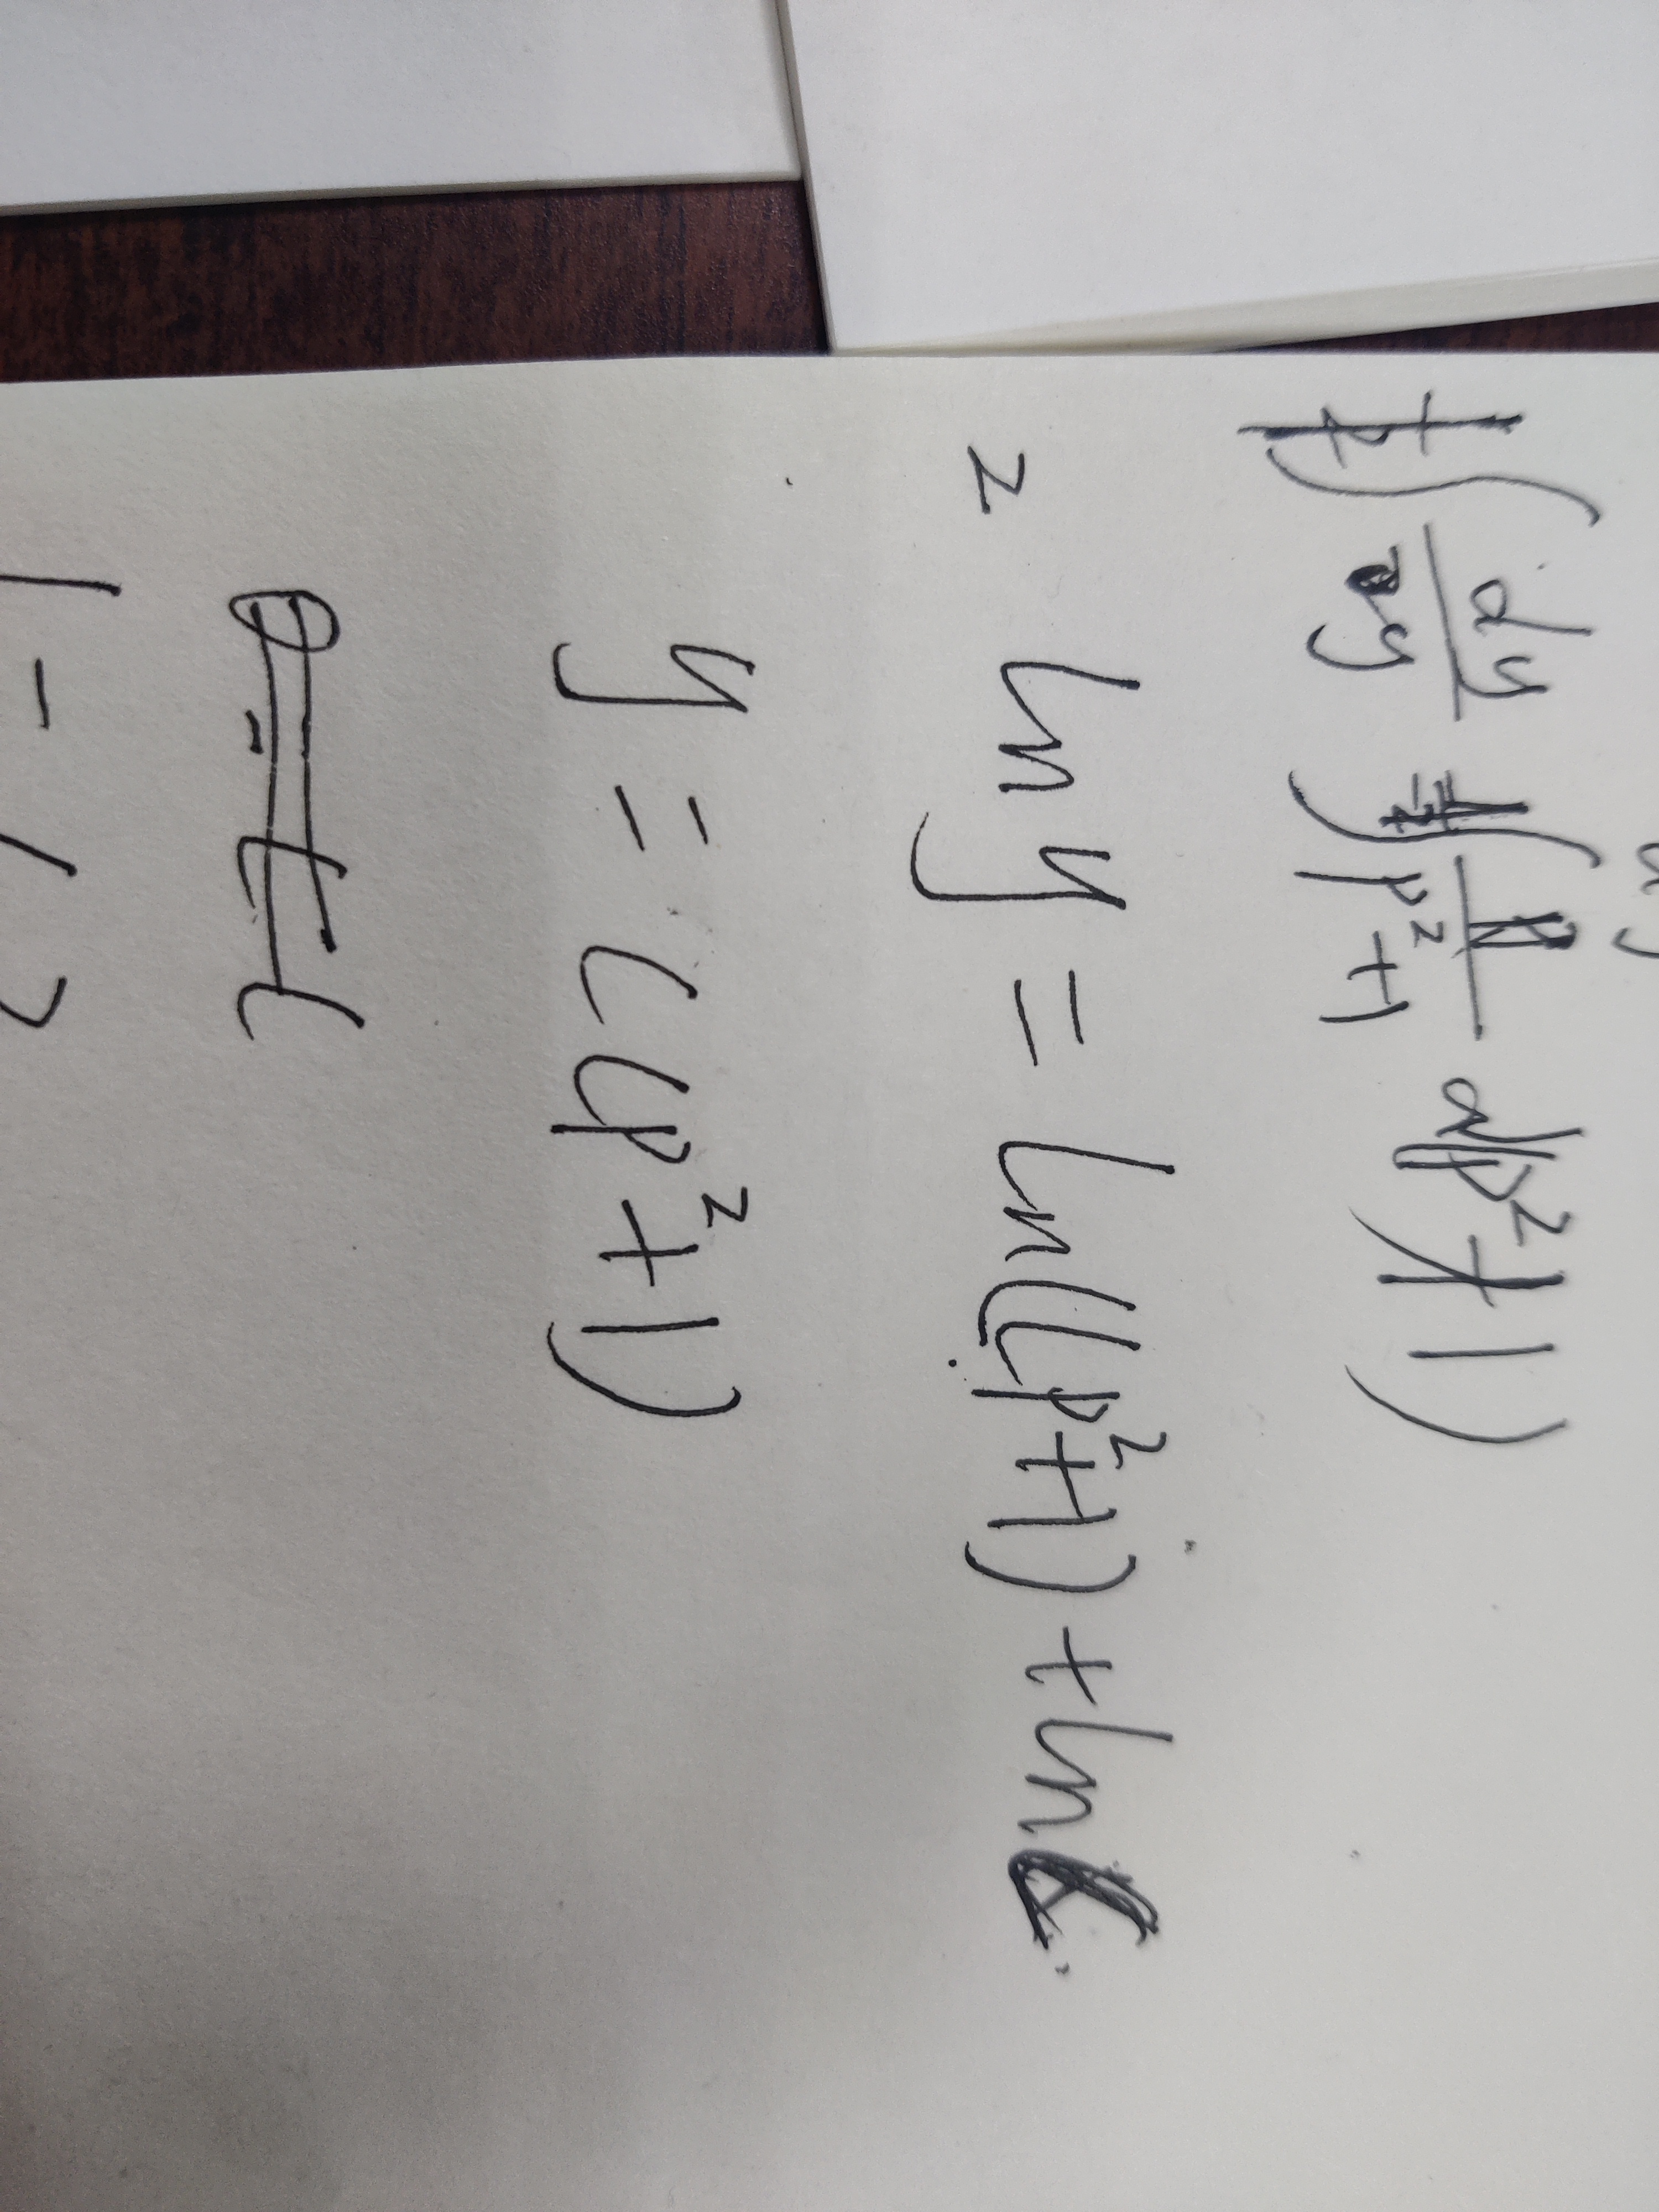 ∫ dy/y = ∫ 1/(p²+1) d(p²+1)
2 ln y = ln(p²+1) + ln C
y = C(p²+1)